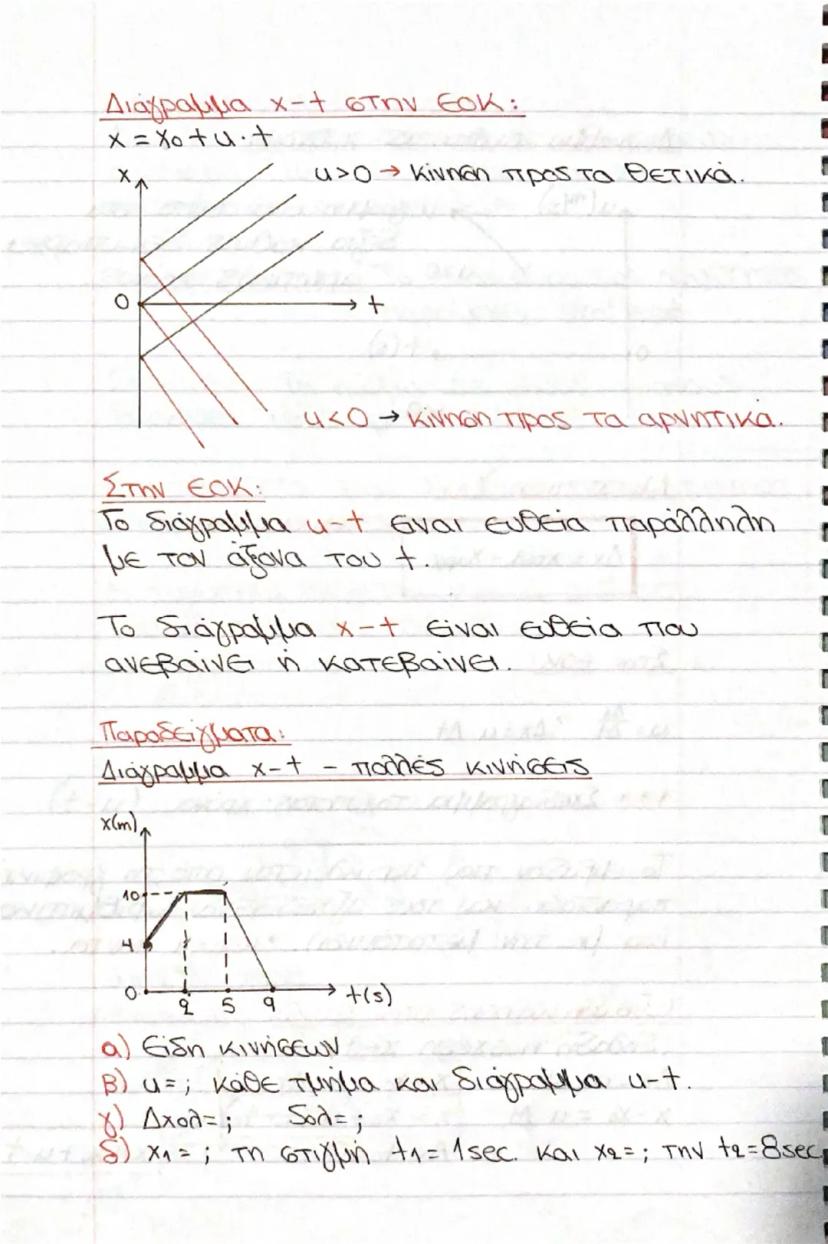 Διάγραμμα x-t στην ΕΟΚ:
x = x₀ + u · t
x
u>0 → κίνηση προς τα θετικά.
0
t
u<0 → κίνηση προς τα αρνητικά.
Στην ΕΟΚ:
Το διάγραμμα u-t είναι ευθεία παράλληλη
με τον άξονα του t.
Το διάγραμμα x-t είναι ευθεία που
ανεβαίνει ή κατεβαίνει.
Παραδείγματα:
Διάγραμμα x-t - πολλές κινήσεις
x(m)
10
4
0 2 5 9 t(s)
α) Είδη κινήσεων
β) u=; κάθε τμήμα και διάγραμμα u-t.
γ) Δxολ=; Sολ=;
δ) x₁=; τη στιγμή t₁=1sec. και x₂=; την t₂=8sec